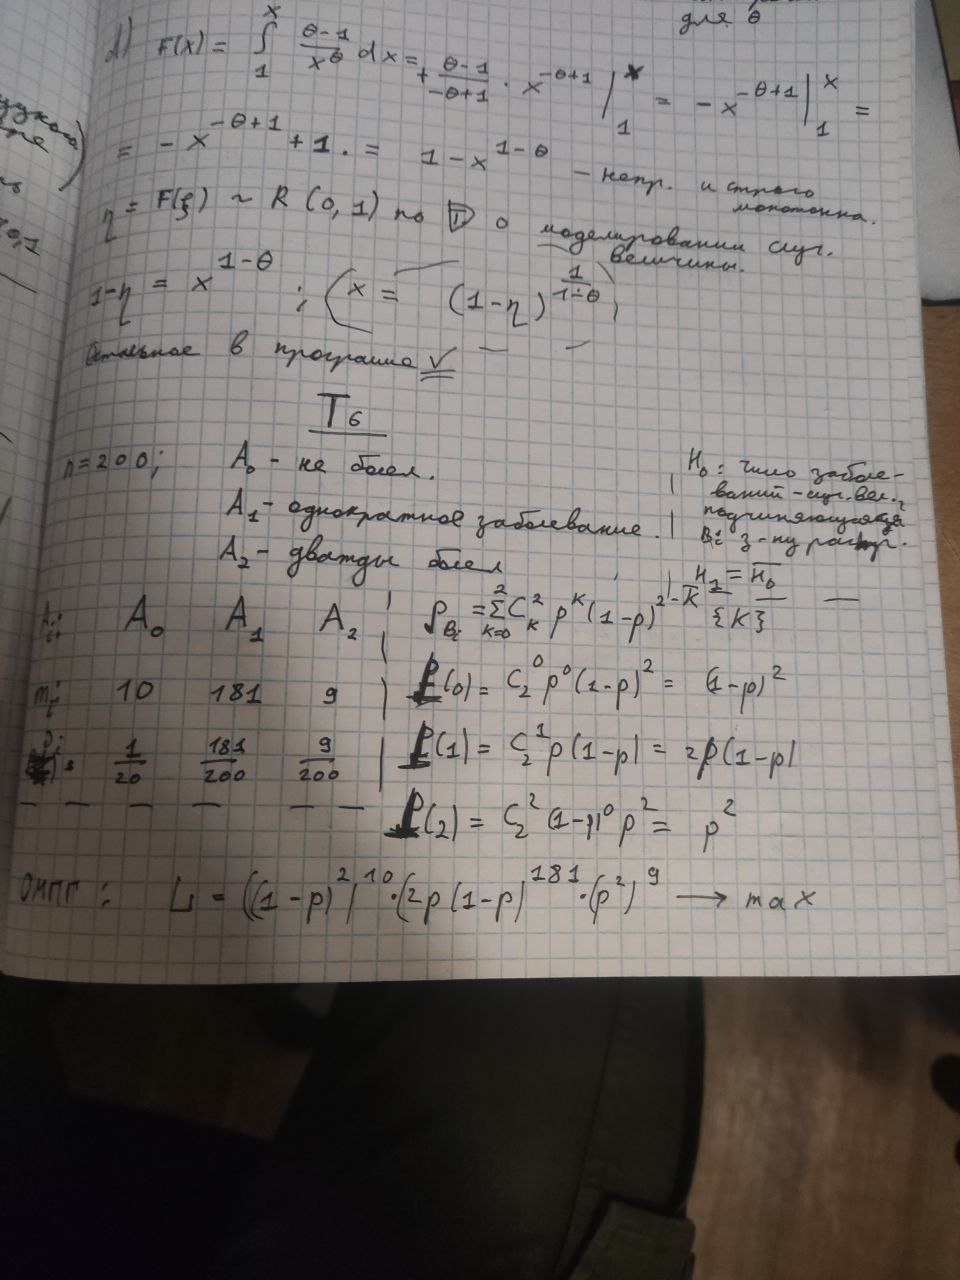 для θ
d) F(x) = ∫₁ˣ (θ-1)/x^θ dx = + (θ-1)/(-θ+1) · x^(-θ+1) |₁ˣ = - x^(-θ+1) |₁ˣ =
= - x^(-θ+1) + 1 . = 1 - x^(1-θ) - непр. и строго
монотонна.
η = F(ξ) ~ R (0, 1) по T о моделировании случ.
величины.
1-η = x^(1-θ) ; ( x = (1-η)^(1/(1-θ)) )
Остальное в программе ✓
T6
n=200; A₀ - не болел.
A₁ - однократное заболевание.
A₂ - дважды болел
H₀: число заболе-
ваний - случ. вел.,
подчиняющаяся
Bi з-ну распр.
H₁ = H̅₀
Aᵢ: A₀ A₁ A₂
mᵢ: 10 181 9
1/20 181/200 9/200
P_Bi = Σ_(k=0)^2 C_k^2 p^k (1-p)^(2-k) {k}
P(0) = C₂⁰ p⁰ (1-p)² = (1-p)²
P(1) = C₂¹ p (1-p) = 2p(1-p)
P(2) = C₂² (1-p)⁰ p² = p²
ОМП : L = ((1-p)²)^10 · (2p(1-p))^181 · (p²)^9 → max